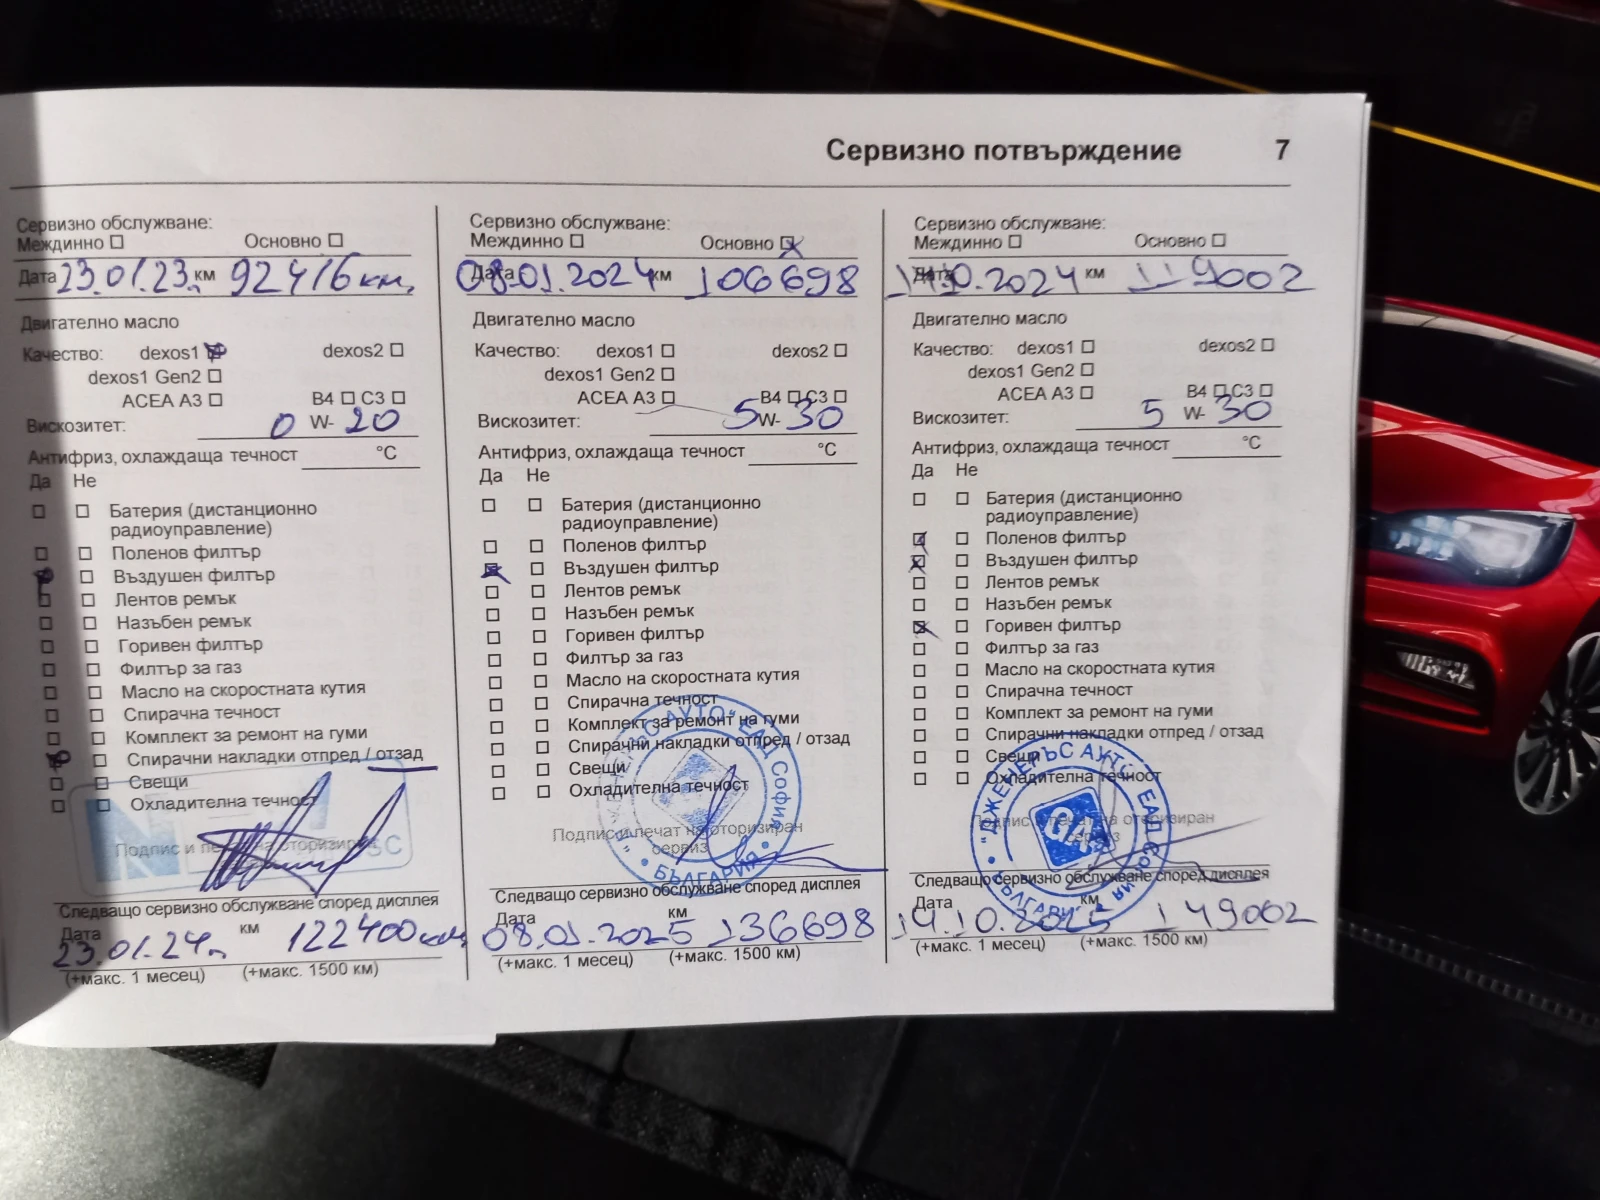 Сервизно потвърждение 7
Сервизно обслужване:
Междинно Основно
Дата 23.01.23 км 92416 км.
Двигателно масло
Качество: dexos1 dexos2
dexos1 Gen2
ACEA A3 B4 C3
Вискозитет: 0 W- 20
Антифриз, охлаждаща течност °C
Да Не
Батерия (дистанционно
радиоуправление)
Поленов филтър
Въздушен филтър
Лентов ремък
Назъбен ремък
Горивен филтър
Филтър за газ
Масло на скоростната кутия
Спирачна течност
Комплект за ремонт на гуми
Спирачни накладки отпред / отзад
Свещи
Охладителна течност
Подпис и печат на оторизиран
SC
Следващо сервизно обслужване според дисплея
Дата км
23.01.24 122400 км
(+макс. 1 месец) (+макс. 1500 км)
Сервизно обслужване:
Междинно Основно
Дата 08.01.2024 км 106698
Двигателно масло
Качество: dexos1 dexos2
dexos1 Gen2
ACEA A3 B4 C3
Вискозитет: 5 W- 30
Антифриз, охлаждаща течност °C
Да Не
Батерия (дистанционно
радиоуправление)
Поленов филтър
Въздушен филтър
Лентов ремък
Назъбен ремък
Горивен филтър
Филтър за газ
Масло на скоростната кутия
Спирачна течност
Комплект за ремонт на гуми
Спирачни накладки отпред / отзад
Свещи
Охладителна течност
АУТО" ЕАД София
• БЪЛГАРИЯ •
Подпис и печат на оторизиран
сервиз
Следващо сервизно обслужване според дисплея
Дата км
08.01.2025 136698
(+макс. 1 месец) (+макс. 1500 км)
Сервизно обслужване:
Междинно Основно
Дата 14.10.2024 км 119002
Двигателно масло
Качество: dexos1 dexos2
dexos1 Gen2
ACEA A3 B4 C3
Вискозитет: 5 W- 30
Антифриз, охлаждаща течност °C
Да Не
Батерия (дистанционно
радиоуправление)
Поленов филтър
Въздушен филтър
Лентов ремък
Назъбен ремък
Горивен филтър
Филтър за газ
Масло на скоростната кутия
Спирачна течност
Комплект за ремонт на гуми
Спирачни накладки отпред / отзад
Свещи
Охладителна течност
АУТО" ЕАД София
• БЪЛГАРИЯ •
Подпис и печат на оторизиран
сервиз
Следващо сервизно обслужване според дисплея
Дата км
14.10.2025 149002
(+макс. 1 месец) (+макс. 1500 км)